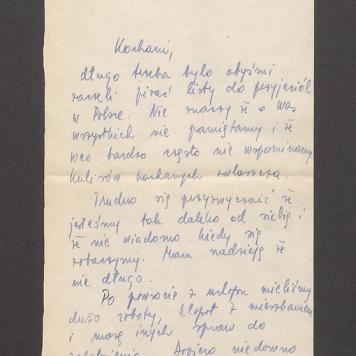 Kochani,
długo trzeba było abyśmy
zaczęli pisać listy do przyjaciół
w Polsce. Nie znaczy że o was
wszystkich nie pamiętamy i że
was bardzo często nie wspominamy
kochanych zwłaszcza.
Trudno się przyzwyczaić że
jesteśmy tak daleko od siebie i
że nie wiadomo kiedy się
zobaczymy. Mam nadzieję że
nie długo.
Po powrocie z urlopu mieliśmy
dużo roboty, kłopot z mieszkaniem
i masę innych spraw do
załatwienia. Dopiero niedawno